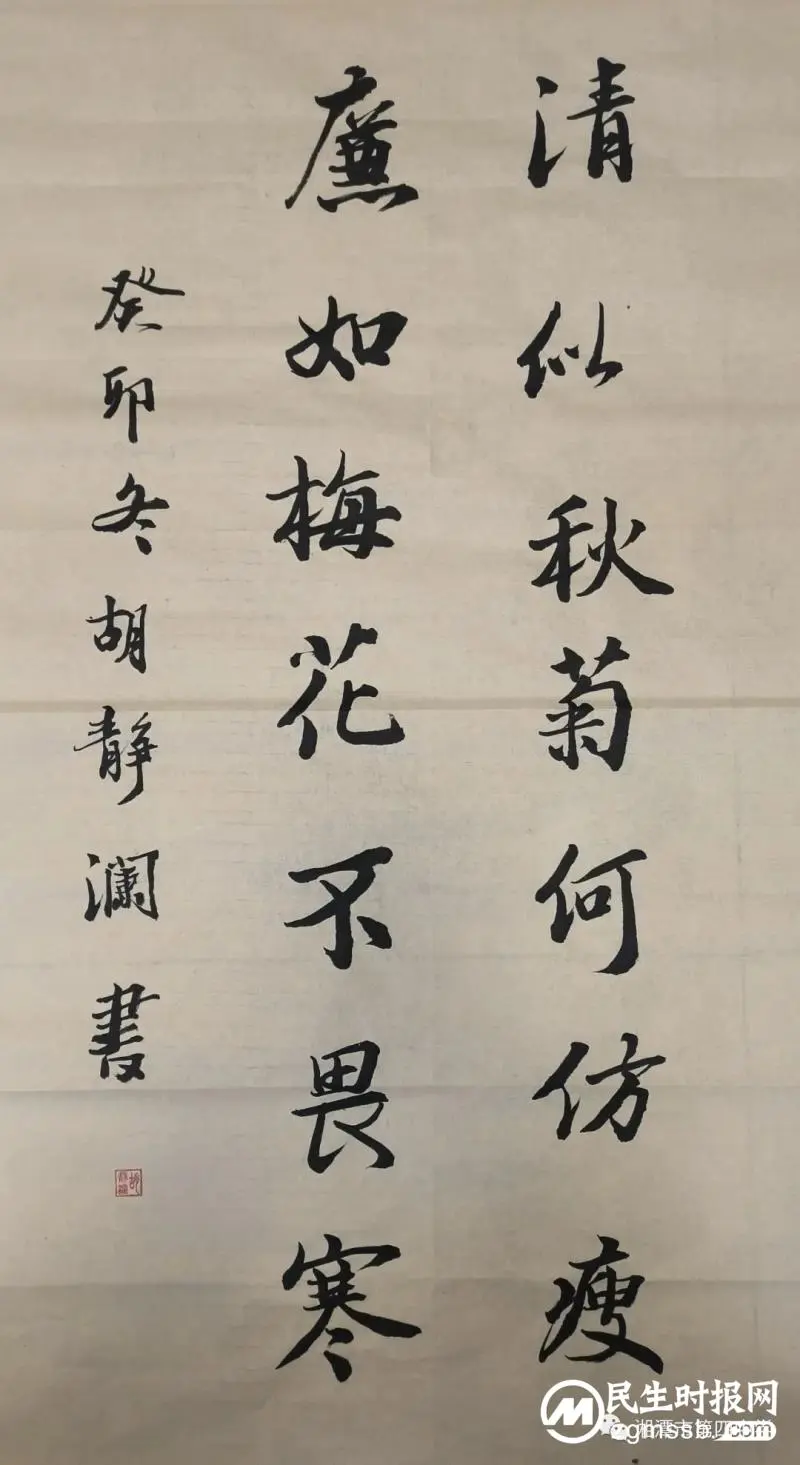 清似秋菊何仿瘦
廉如梅花不畏寒
癸卯冬胡静澜書
民生时报网
gmssb.com